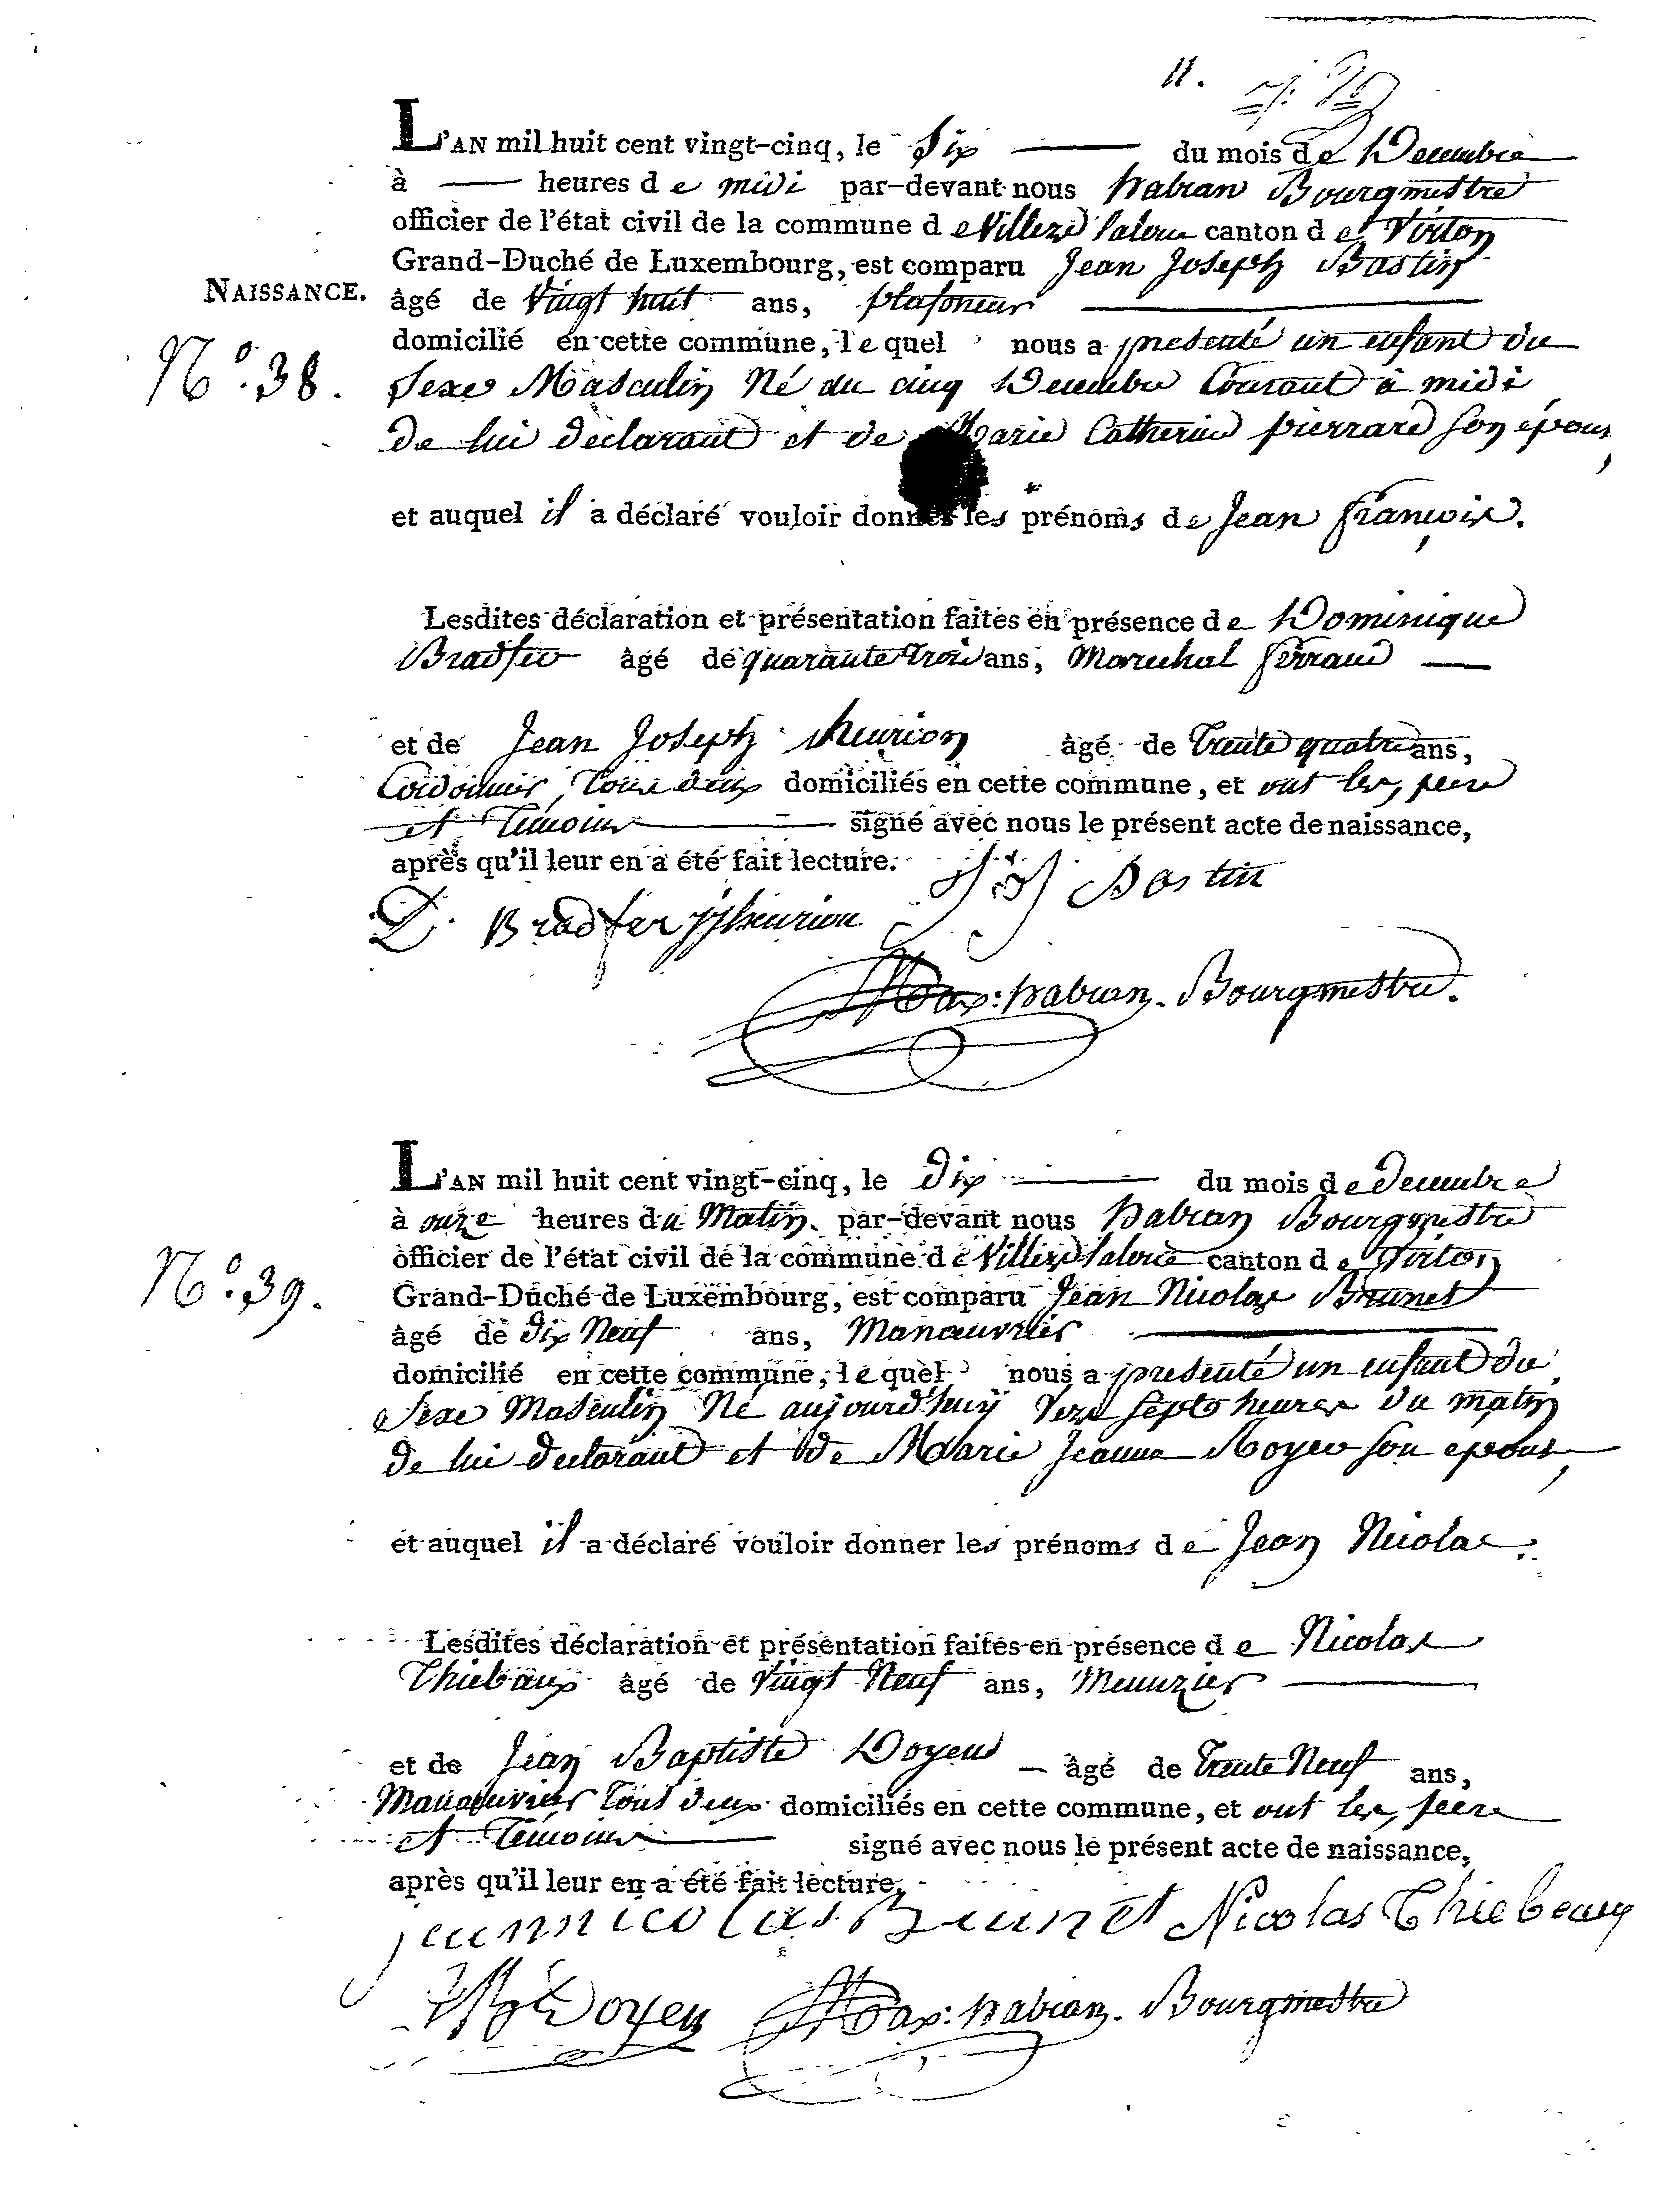 11.
L'AN mil huit cent vingt-cinq, le Six du mois de Decembre
à heures de midi par-devant nous habran Bourgmestre
officier de l'état civil de la commune de Villers Laloue canton de Virton
Grand-Duché de Luxembourg, est comparu Jean Joseph Bastin
NAISSANCE. âgé de Vingt huit ans, plafoneur
domicilié en cette commune, lequel nous a presenté un enfant du
N.º 38. Sexe Masculin Né du cinq Decembre Courant à midi
de lui déclarant et de Marie Catherine pierrard son epouse,
et auquel il a déclaré vouloir donner les prénoms de Jean françois.
Lesdites déclaration et présentation faites en présence de Dominique
Bradfer âgé de quarante trois ans, Marechal ferrant
et de Jean Joseph thurion âgé de trente quatre ans,
Cordonnier, tous deux domiciliés en cette commune, et ont les, pere
et temoins signé avec nous le présent acte de naissance,
après qu'il leur en a été fait lecture. JJ Bastin
D. Bradfer JJ thurion
Max: habran. Bourgmestre.
L'AN mil huit cent vingt-cinq, le Dix du mois de Decembre
à onze heures du Matin. par-devant nous habran Bourgmestre
officier de l'état civil de la commune de Villers Laloue canton de Virton
N.º 39. Grand-Duché de Luxembourg, est comparu Jean Nicolas Brunet
âgé de Dix Neuf ans, Manœuvrier
domicilié en cette commune, lequel nous a presenté un enfant du
Sexe Masculin Né aujourd'huy Vers septs heures du matin
de lui declarant et de Marie Jeanne Noyer son epouse,
et auquel il a déclaré vouloir donner les prénoms de Jean Nicolas.
Lesdites déclaration et présentation faites en présence de Nicolas
Thiebaux âgé de Vingt Neuf ans, Menuzier
et de Jean Baptiste Doyen âgé de trente Neuf ans,
Manœuvrier tous deux domiciliés en cette commune, et ont les, pere
et temoins signé avec nous le présent acte de naissance,
après qu'il leur en a été fait lecture.
jean nicolas Brunet Nicolas Thiebeaux
Doyen Max: habran. Bourgmestre